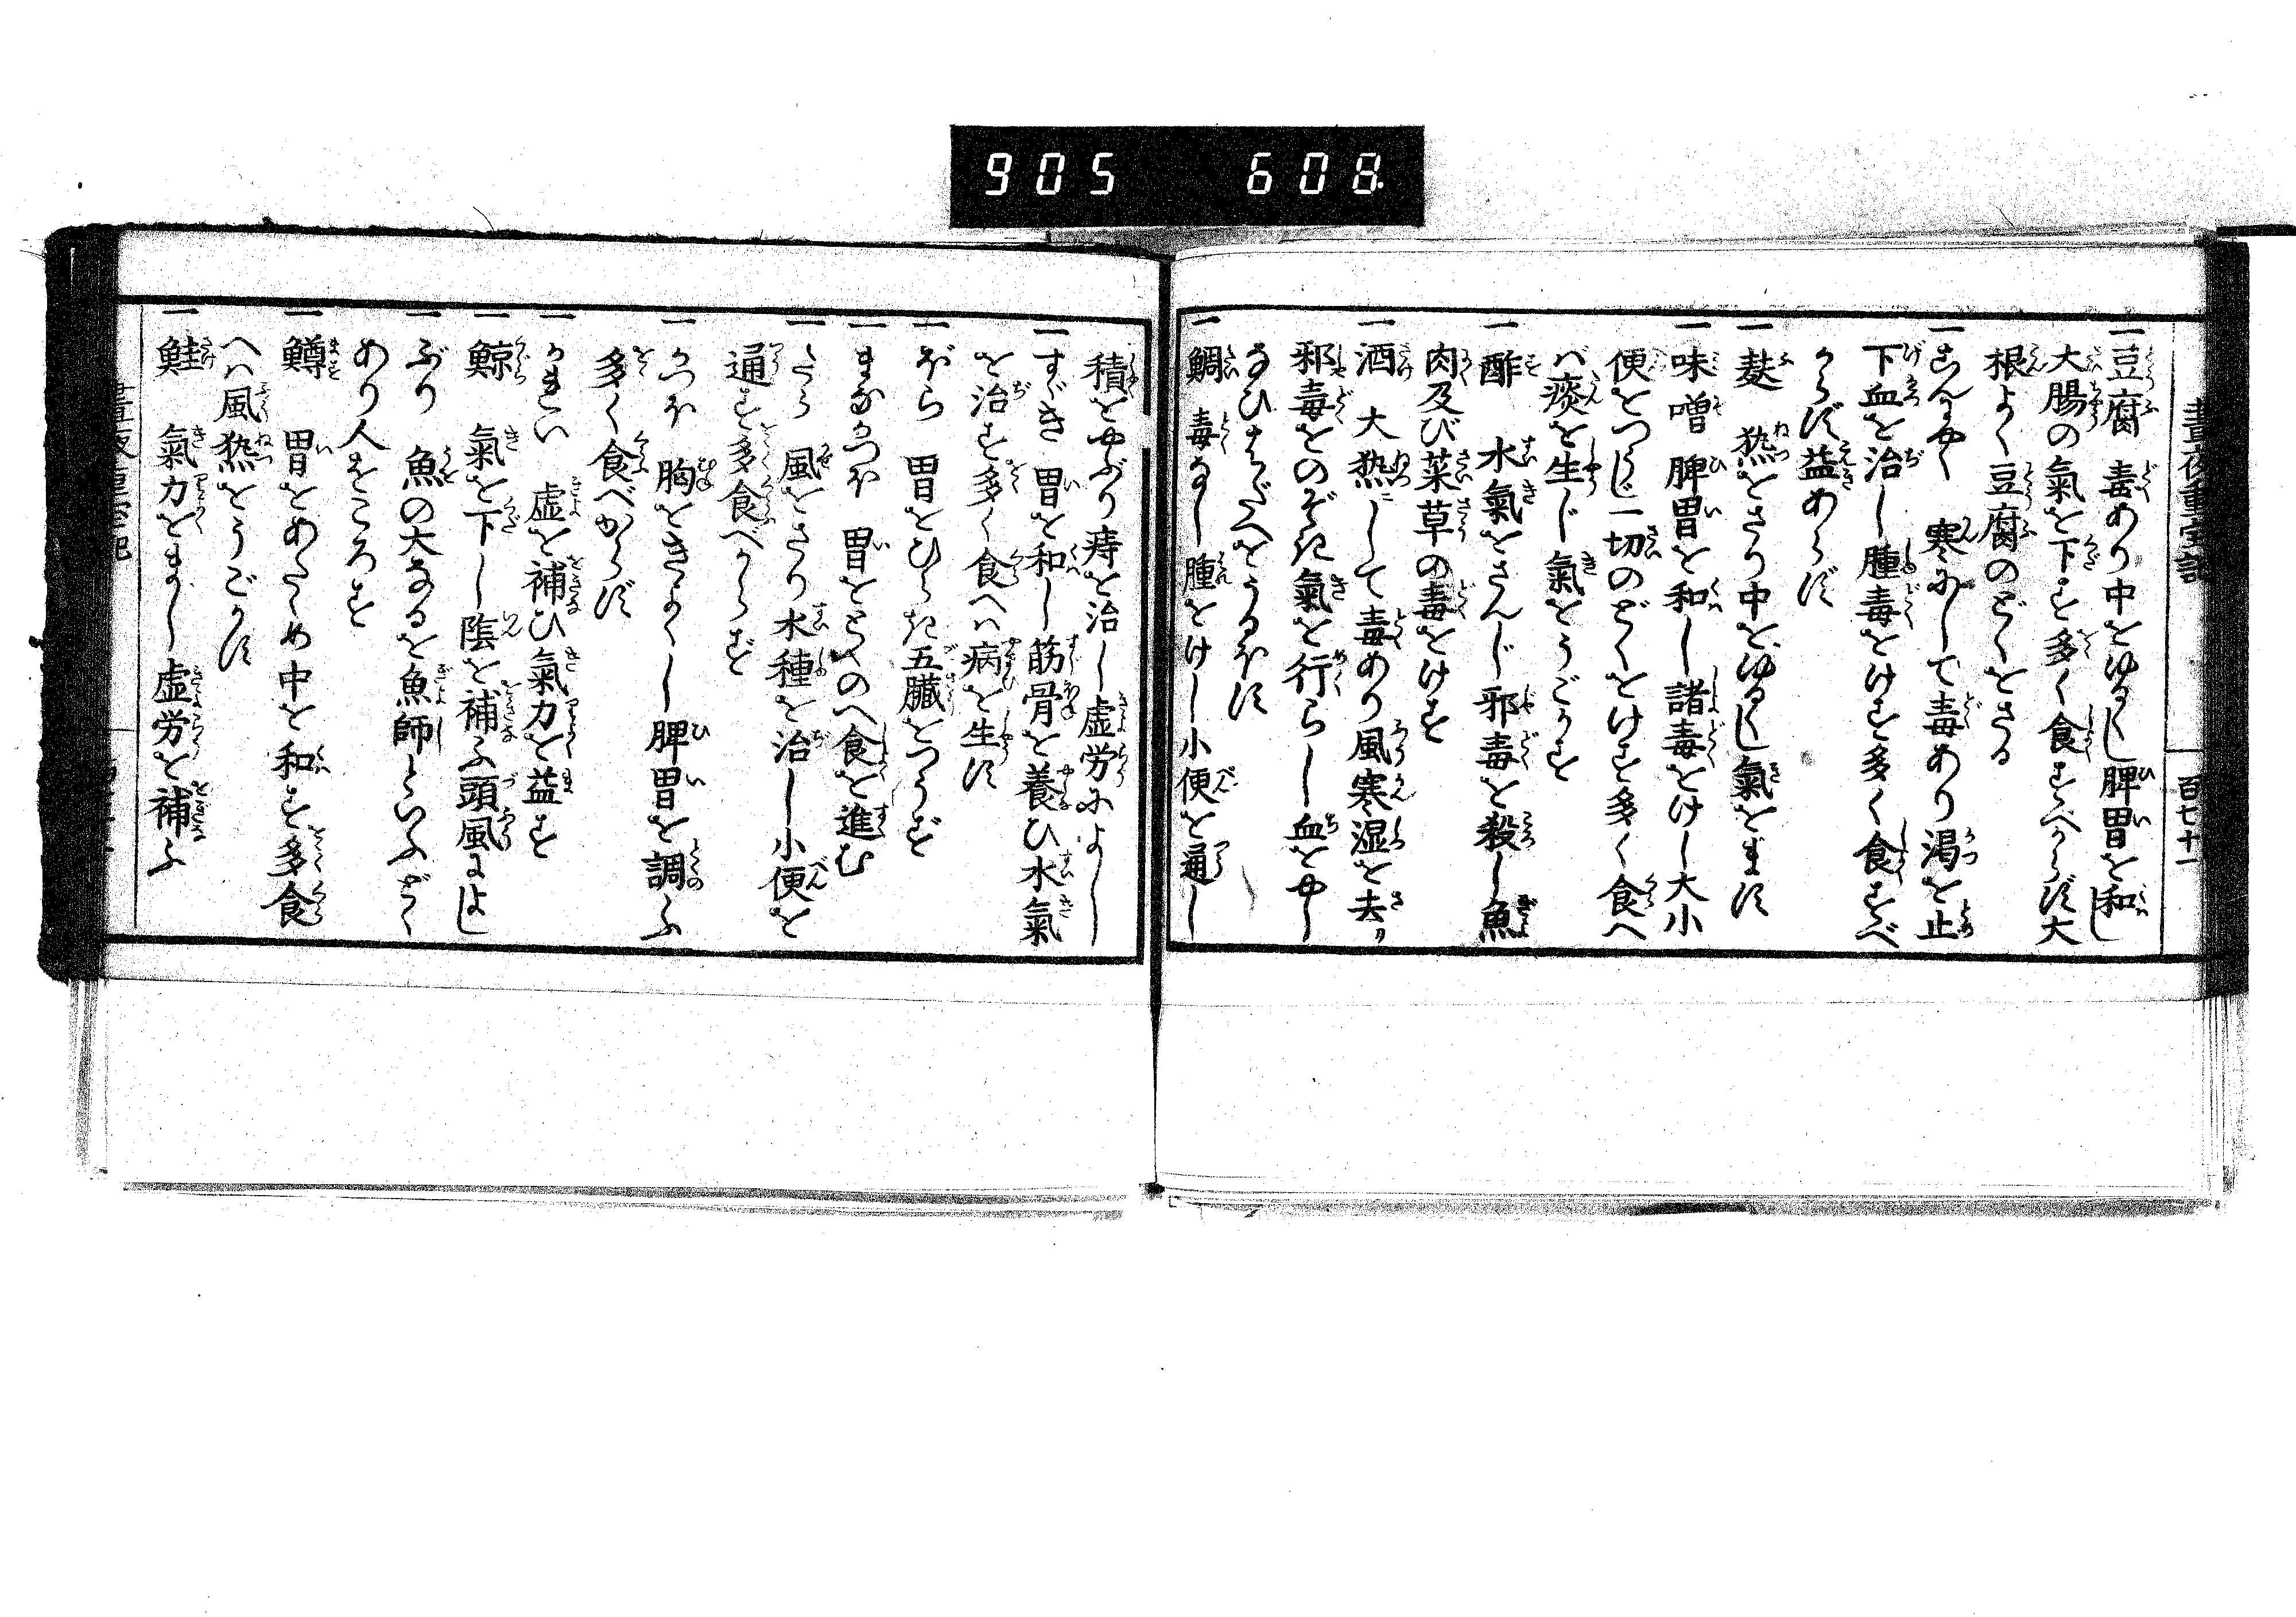 905 608.
晝夜重宝記
百七十一
一豆腐 毒あり中をゆるくし脾胃を和し
大腸の氣を下す多く食すべからず大
根よく豆腐のどくをさる
一こんにやく 寒にして毒あり渇を止
下血を治し腫毒をけす多く食すべ
からず益あらず
一麩 热をさり中をゆるくし氣をます
一味噌 脾胃を和し諸毒をけし大小
便をつうじ一切のどくをけす多く食へ
バ痰を生じ氣をうごかす
一酢 水氣をさんじ邪毒を殺し魚
肉及び菜草の毒をけす
一酒 大热ニして毒あり風寒湿を去リ
邪毒をのぞき氣を行らし血をやし
なひはだへをうるほす
一鯛 毒なし腫をけし小便を通し
積をやぶり痔を治し虚労によし
一すゞき 胃を和し筋骨を養ひ水氣
を治す多く食へハ病を生す
一ぼら 胃をひらき五臓をつうず
一まながつほ 胃をとゝのへ食を進む
一たら 風をさり水種を治し小便を
通す多食べからず
一かつほ 胸をきよくし脾胃を調ふ
多く食べからず
一かまい 虚を補ひ氣力を益す
一鯨 氣を下し陰を補ふ頭風によし
一ぶり 魚の大なるを魚師といふどく
あり人をころす
一鱒 胃をあたゝめ中を和す多食
へハ風热をうごかす
一鮭 氣力をまし虚労を補ふ